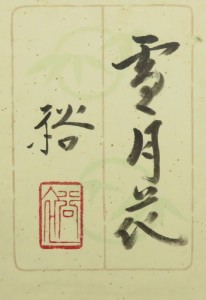 雪月花
裕